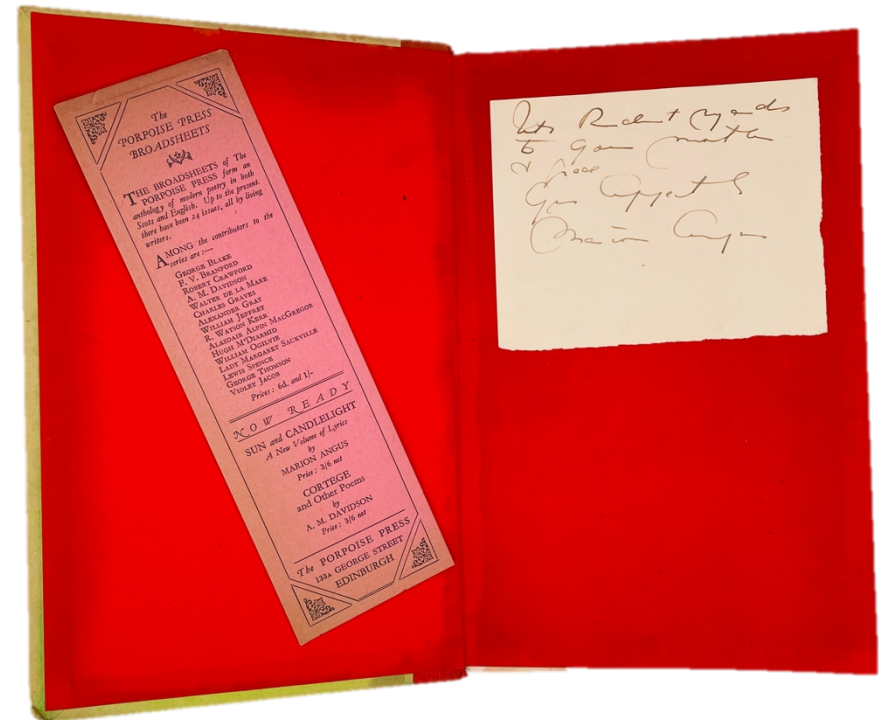 The
PORPOISE PRESS
BROADSHEETS
THE BROADSHEETS of The
PORPOISE PRESS form an
anthology of modern poetry in both
Scots and English. Up to the present
there have been 24 issues, all by living
writers.
AMONG the contributors to the
series are:—
GEORGE BLAKE
F. V. BRANFORD
ROBERT CRAWFORD
A. M. DAVIDSON
WALTER DE LA MARE
CHARLES GRAVES
ALEXANDER GRAY
WILLIAM JEFFREY
R. WATSON KERR
ALASDAIR ALPIN MACGREGOR
HUGH M'DIARMID
WILLIAM OGILVIE
LADY MARGARET SACKVILLE
LEWIS SPENCE
GEORGE THOMSON
VIOLET JACOB
Prices: 6d. and 1/-
NOW READY
SUN and CANDLELIGHT
A New Volume of Lyrics
by
MARION ANGUS
Price: 3/6 net
CORTEGE
and Other Poems
by
A. M. DAVIDSON
Price: 3/6 net
The PORPOISE PRESS
133A GEORGE STREET
EDINBURGH
to your mother
&
Marion Angus